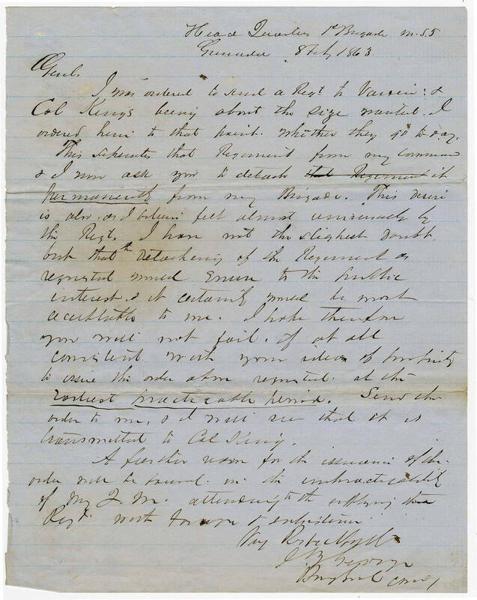 Head Quarters 1st Brigade M.S.T
Grenada 8 Feby 1863
Genl.
I was ordered to send a Regt to &
Col King's being about the size wanted I
ordered him to that point. Whether they go to day.
This separates that Regiment from my command
& I now ask you to detach that Regiment it
permanently from my Brigade. This desire
is also, as I believe felt almost unanimously by
the Regt. I have not the slightest doubt
but that the detaching of the Regiment as
requested would Enure to the public
interest, & it certainly would be most
acceptable to me. I hope therefore
you will not fail, if at all
consistent with your ideas of propriety
to issue the order above requested at the
Earliest practicable period. Send the
order to me, & I will see that it is
transmitted to Col King.
A further reason for the issuance of this
order will be found in the impracticability
of my Q M. attending to the supplying that
Regt with forage &
Very Respectfully
J Z George
Brig Genl Comdg